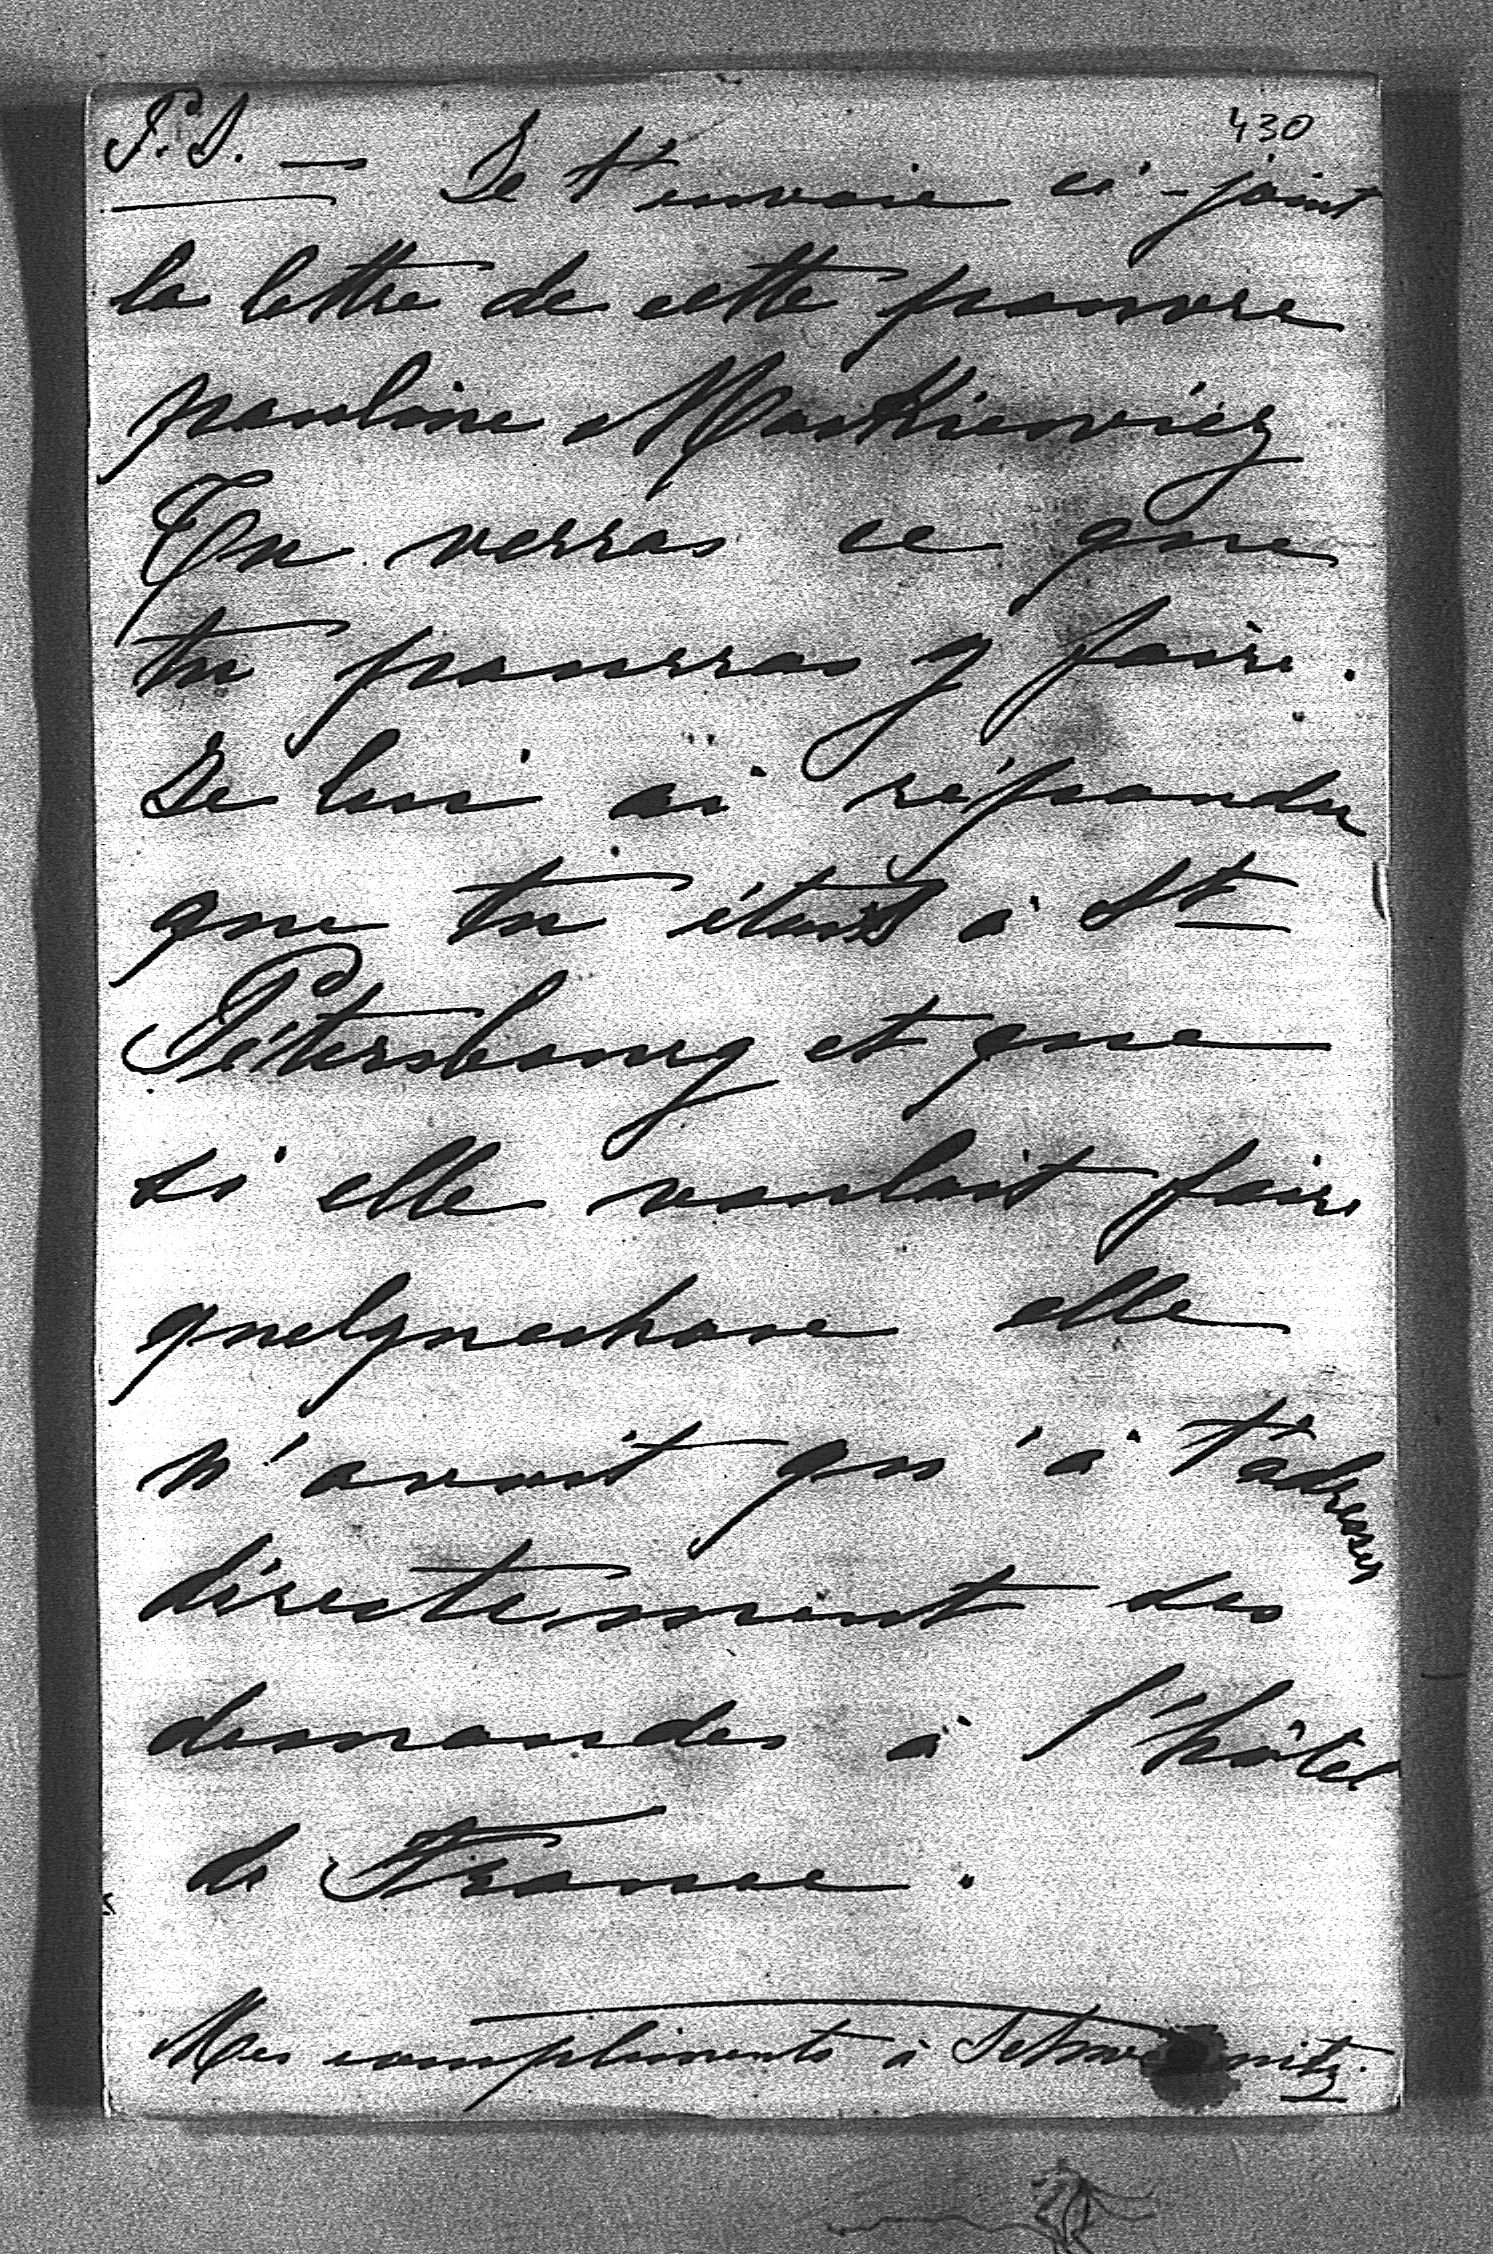 430
P. S. — Je t'envoie ci-joint
la lettre de cette pauvre
pauline Mackiewicz
Tu verras ce que
tu pourras y faire.
Je lui ai répondu
que tu étais à St
Pétersbourg et que
si elle voulait faire
quelquechose elle
n'avait qu'à t'adresser
directement ses
demandes à l'hôtel
de France.
Mes compliments à